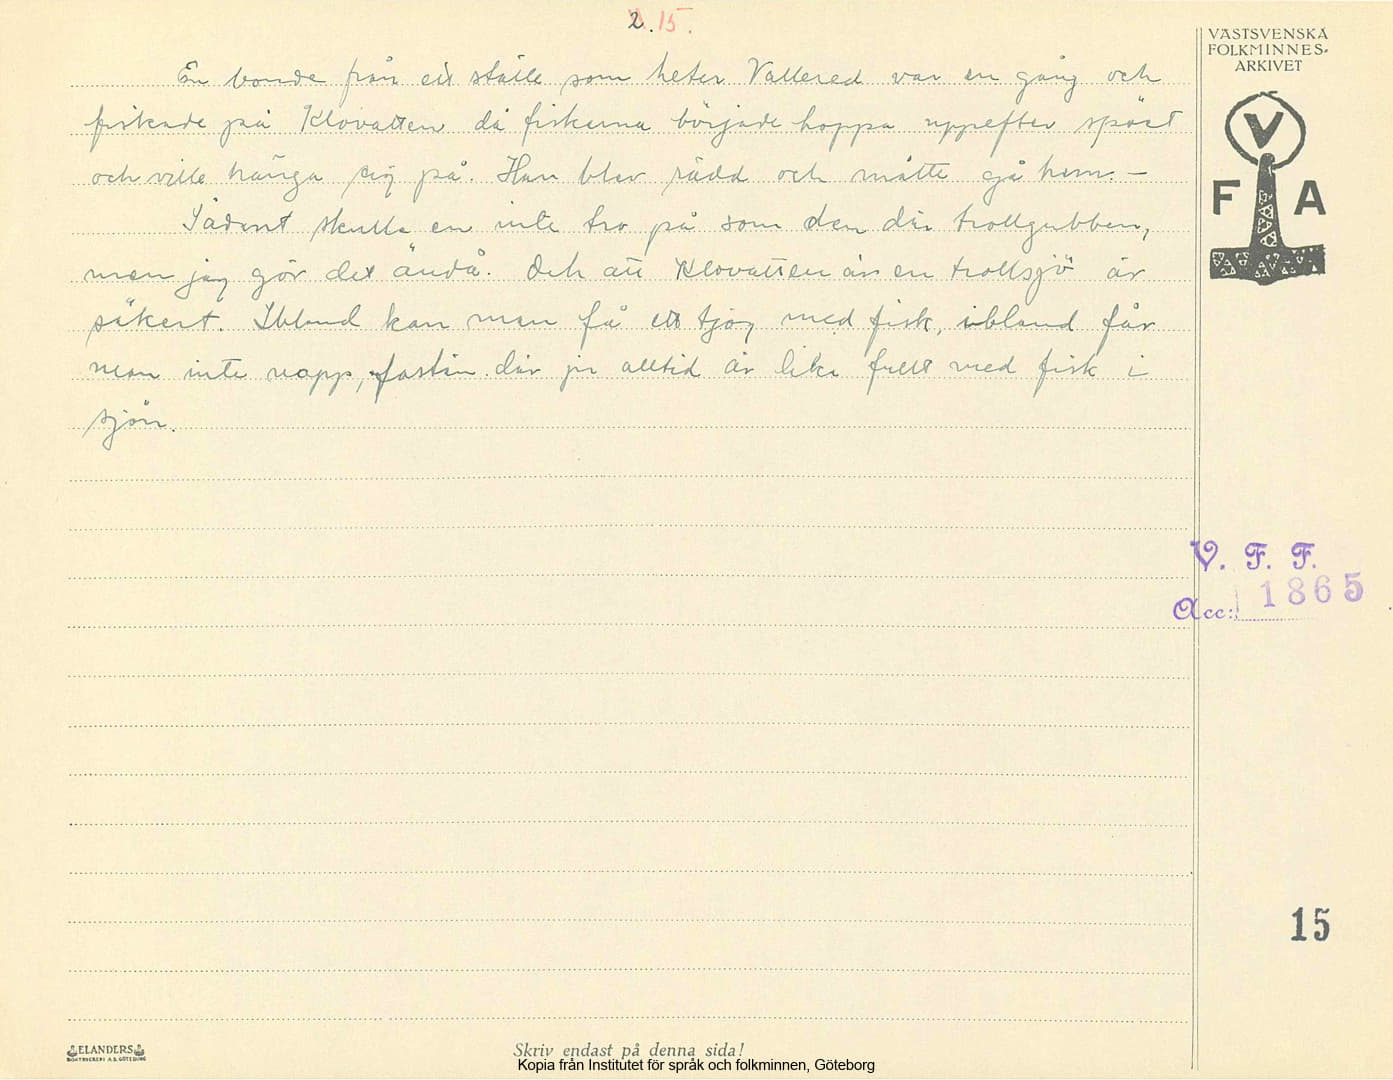 2. 15.
VÄSTSVENSKA
FOLKMINNES-
ARKIVET
En bonde från ett ställe som heter Vallered var en gång och
fiskade på Klovatten då fiskarna började hoppa uppefter spöet
och ville hänga sig på. Han blev rädd och måtte gå hem. –
Sådant skulle en inte tro på som den där trollgubben,
men jag gör det ändå. Och att Klovatten är en trollsjö är
säkert. Ibland kan man få ett tjog med fisk, ibland får
man inte napp, fastän där ju alltid är lika fullt med fisk i
sjön.
V
F A
V. F. F.
Acc: 1865
15
ELANDERS
BOKTRYCKERI A.B. GÖTEBORG
Skriv endast på denna sida!
Kopia från Institutet för språk och folkminnen, Göteborg